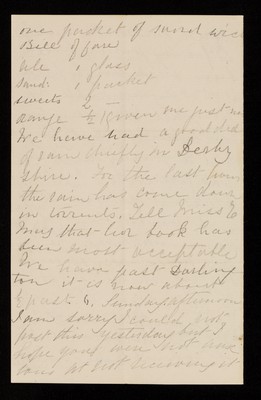 one packet of sand wic
Bill of fare
Ale 1 glass
Sand: 1 packet
sweets 2 —
orange ½ (given me just
We have had a good deal
of rain chiefly in Derby
shire. For the last hour
the rain has come down
in torrents. Tell Miss
that her book has
been most acceptable
We have past Darling
ton it is now about
½ past 6. Sunday afternoon
I am sorry I could not
post this yesterday but I
hope you were not anxi
ous at not receiving it